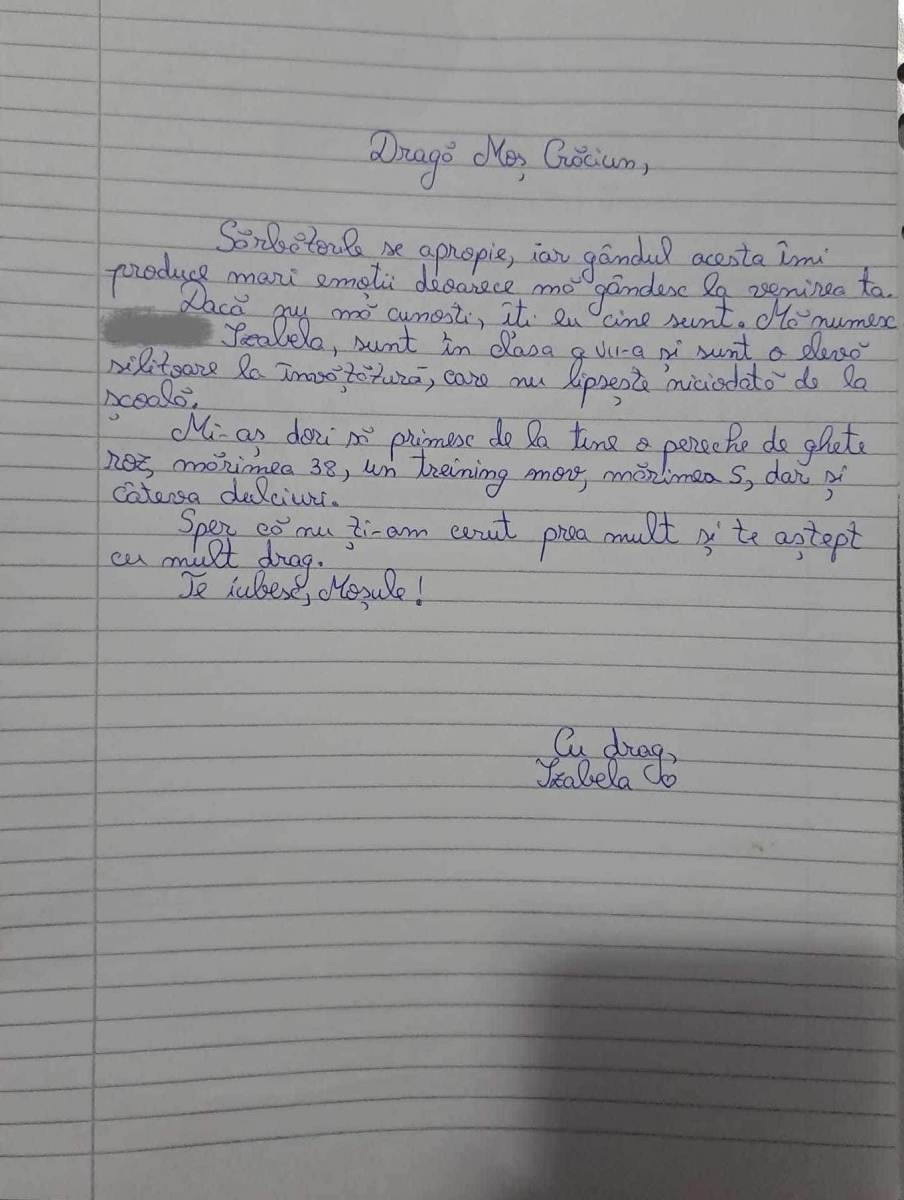 Dragă Moș Crăciun,
Sărbătorile se apropie, iar gândul acesta îmi
produce mari emoții deoarece mă gândesc la venirea ta.
Dacă nu mă cunoști, îți eu cine sunt. Mă numesc
Izabela, sunt în clasa a VII-a și sunt o elevă
silitoare la învățătură, care nu lipsește niciodată de la
școală.
Mi-aș dori să primesc de la tine o pereche de ghete
roz, mărimea 38, un treining mov, mărimea S, dar și
câteva dulciuri.
Sper că nu ți-am cerut prea mult și te aștept
cu mult drag.
Te iubesc, Moșule!
Cu drag,
Izabela